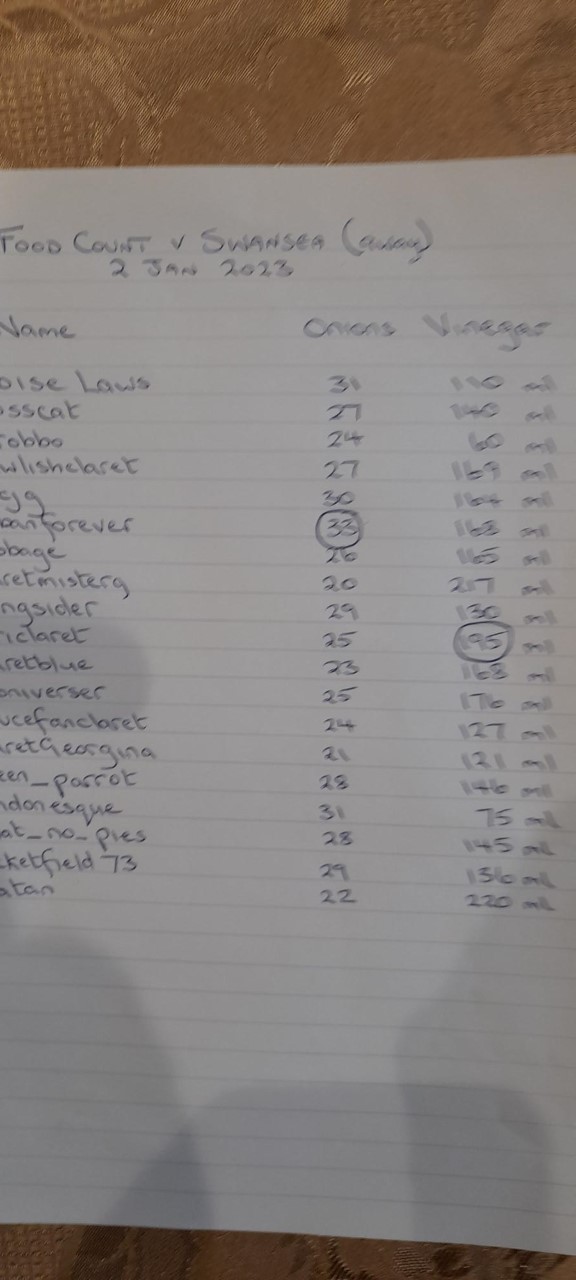 FOOD COUNT V SWANSEA (away)
2 JAN 2023
Name Onions Vinegar
oise Laws 31 110 ml
osscat 27 140 ml
obbo 24 60 ml
wlishclaret 27 169 ml
gg 30 164 ml
eanforever 33 168 ml
bbage 26 165 ml
retmisterg 20 217 ml
ngsider 29 130 ml
iclaret 25 195 ml
retblue 23 168 ml
oniverser 25 176 ml
ucefanclaret 24 127 ml
retGeorgina 21 121 ml
een_parrot 28 146 ml
ndonesque 31 75 ml
at_no_pies 28 145 ml
cketfield 73 29 156 ml
atan 22 220 ml